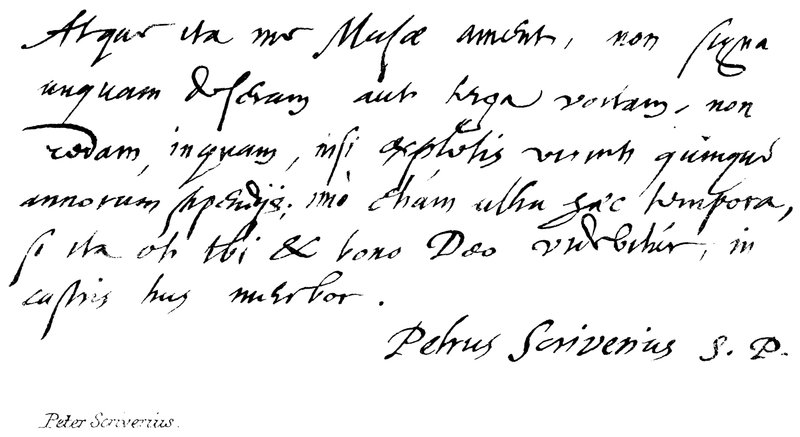 Atque ita me Musæ ament, non signa
unquam deseram aut terga vortam, non
cedam, inquam, nisi expletis quinque
annorum stipendijs; imò etiam ultra hæc tempora,
si ita et tibi & bono Deo videbitur, in
castris tuis merebor.
Petrus Scriverius S. P.
Peter Scriverius.